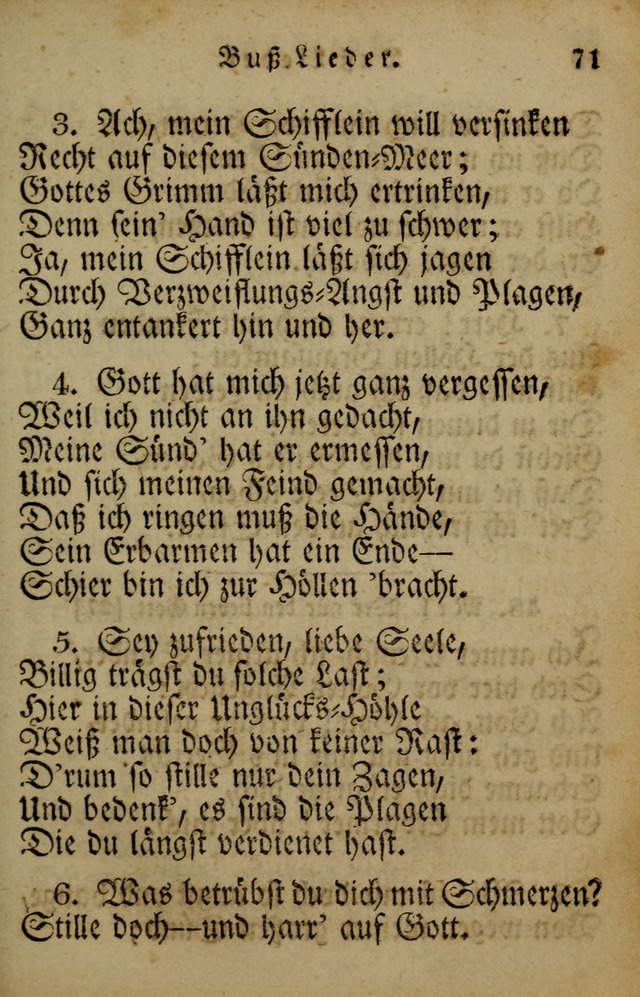 Buß-Lieder. 71
3. Ach, mein Schifflein will versinken
Recht auf diesem Sünden-Meer;
Gottes Grimm läßt mich ertrinken,
Denn sein' Hand ist viel zu schwer;
Ja, mein Schifflein läßt sich jagen
Durch Verzweiflungs-Angst und Plagen,
Ganz entankert hin und her.
4. Gott hat mich jetzt ganz vergessen,
Weil ich nicht an ihn gedacht,
Meine Sünd' hat er ermessen,
Und sich meinen Feind gemacht,
Daß ich ringen muß die Hände,
Sein Erbarmen hat ein Ende—
Schier bin ich zur Höllen 'bracht.
5. Sey zufrieden, liebe Seele,
Billig trägst du solche Last;
Hier in dieser Unglücks-Höhle
Weiß man doch von keiner Rast:
D'rum so stille nur dein Zagen,
Und bedenk', es sind die Plagen
Die du längst verdienet hast.
6. Was betrübst du dich mit Schmerzen?
Stille doch--und harr' auf Gott.